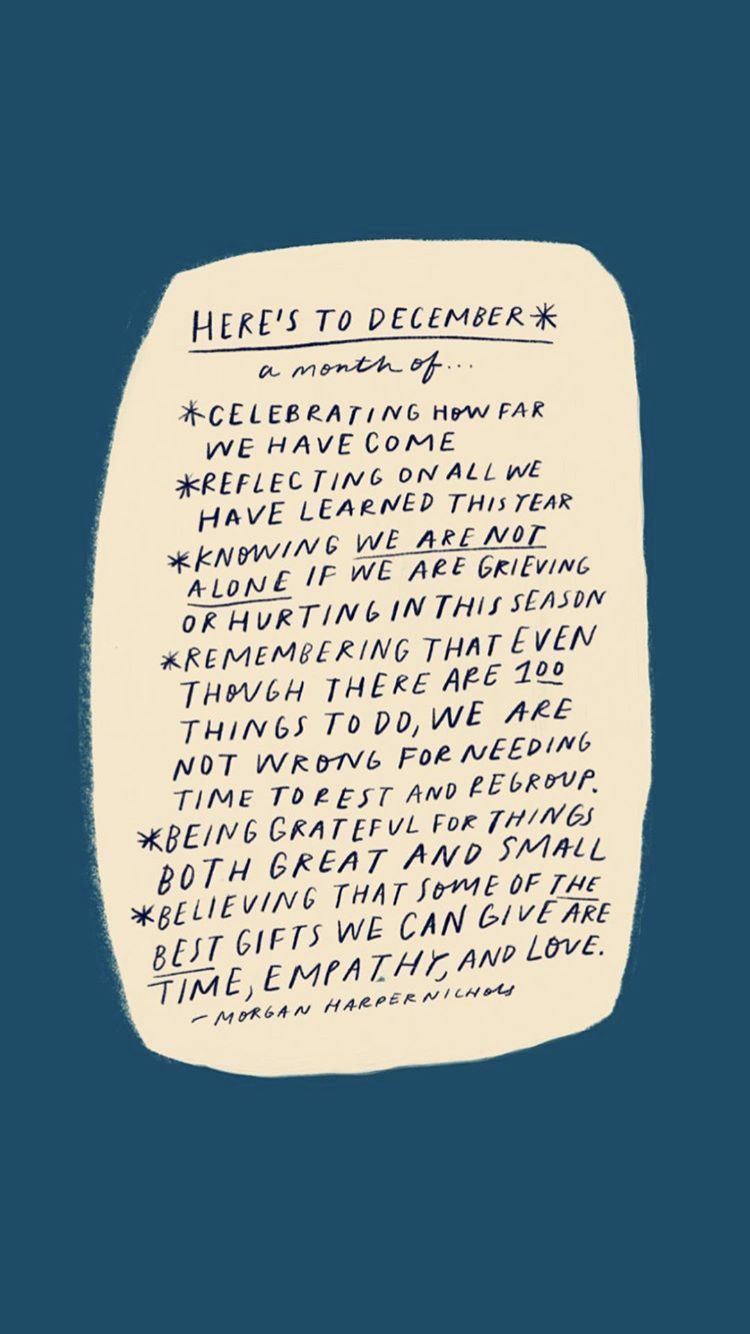 HERE'S TO DECEMBER*
a month of...
*CELEBRATING HOW FAR
WE HAVE COME
*REFLECTING ON ALL WE
HAVE LEARNED THIS YEAR
*KNOWING WE ARE NOT
ALONE IF WE ARE GRIEVING
OR HURTING IN THIS SEASON
*REMEMBERING THAT EVEN
THOUGH THERE ARE 100
THINGS TO DO, WE ARE
NOT WRONG FOR NEEDING
TIME TO REST AND REGROUP.
*BEING GRATEFUL FOR THINGS
BOTH GREAT AND SMALL
*BELIEVING THAT SOME OF THE
BEST GIFTS WE CAN GIVE ARE
TIME, EMPATHY, AND LOVE.
- MORGAN HARPER NICHOLS